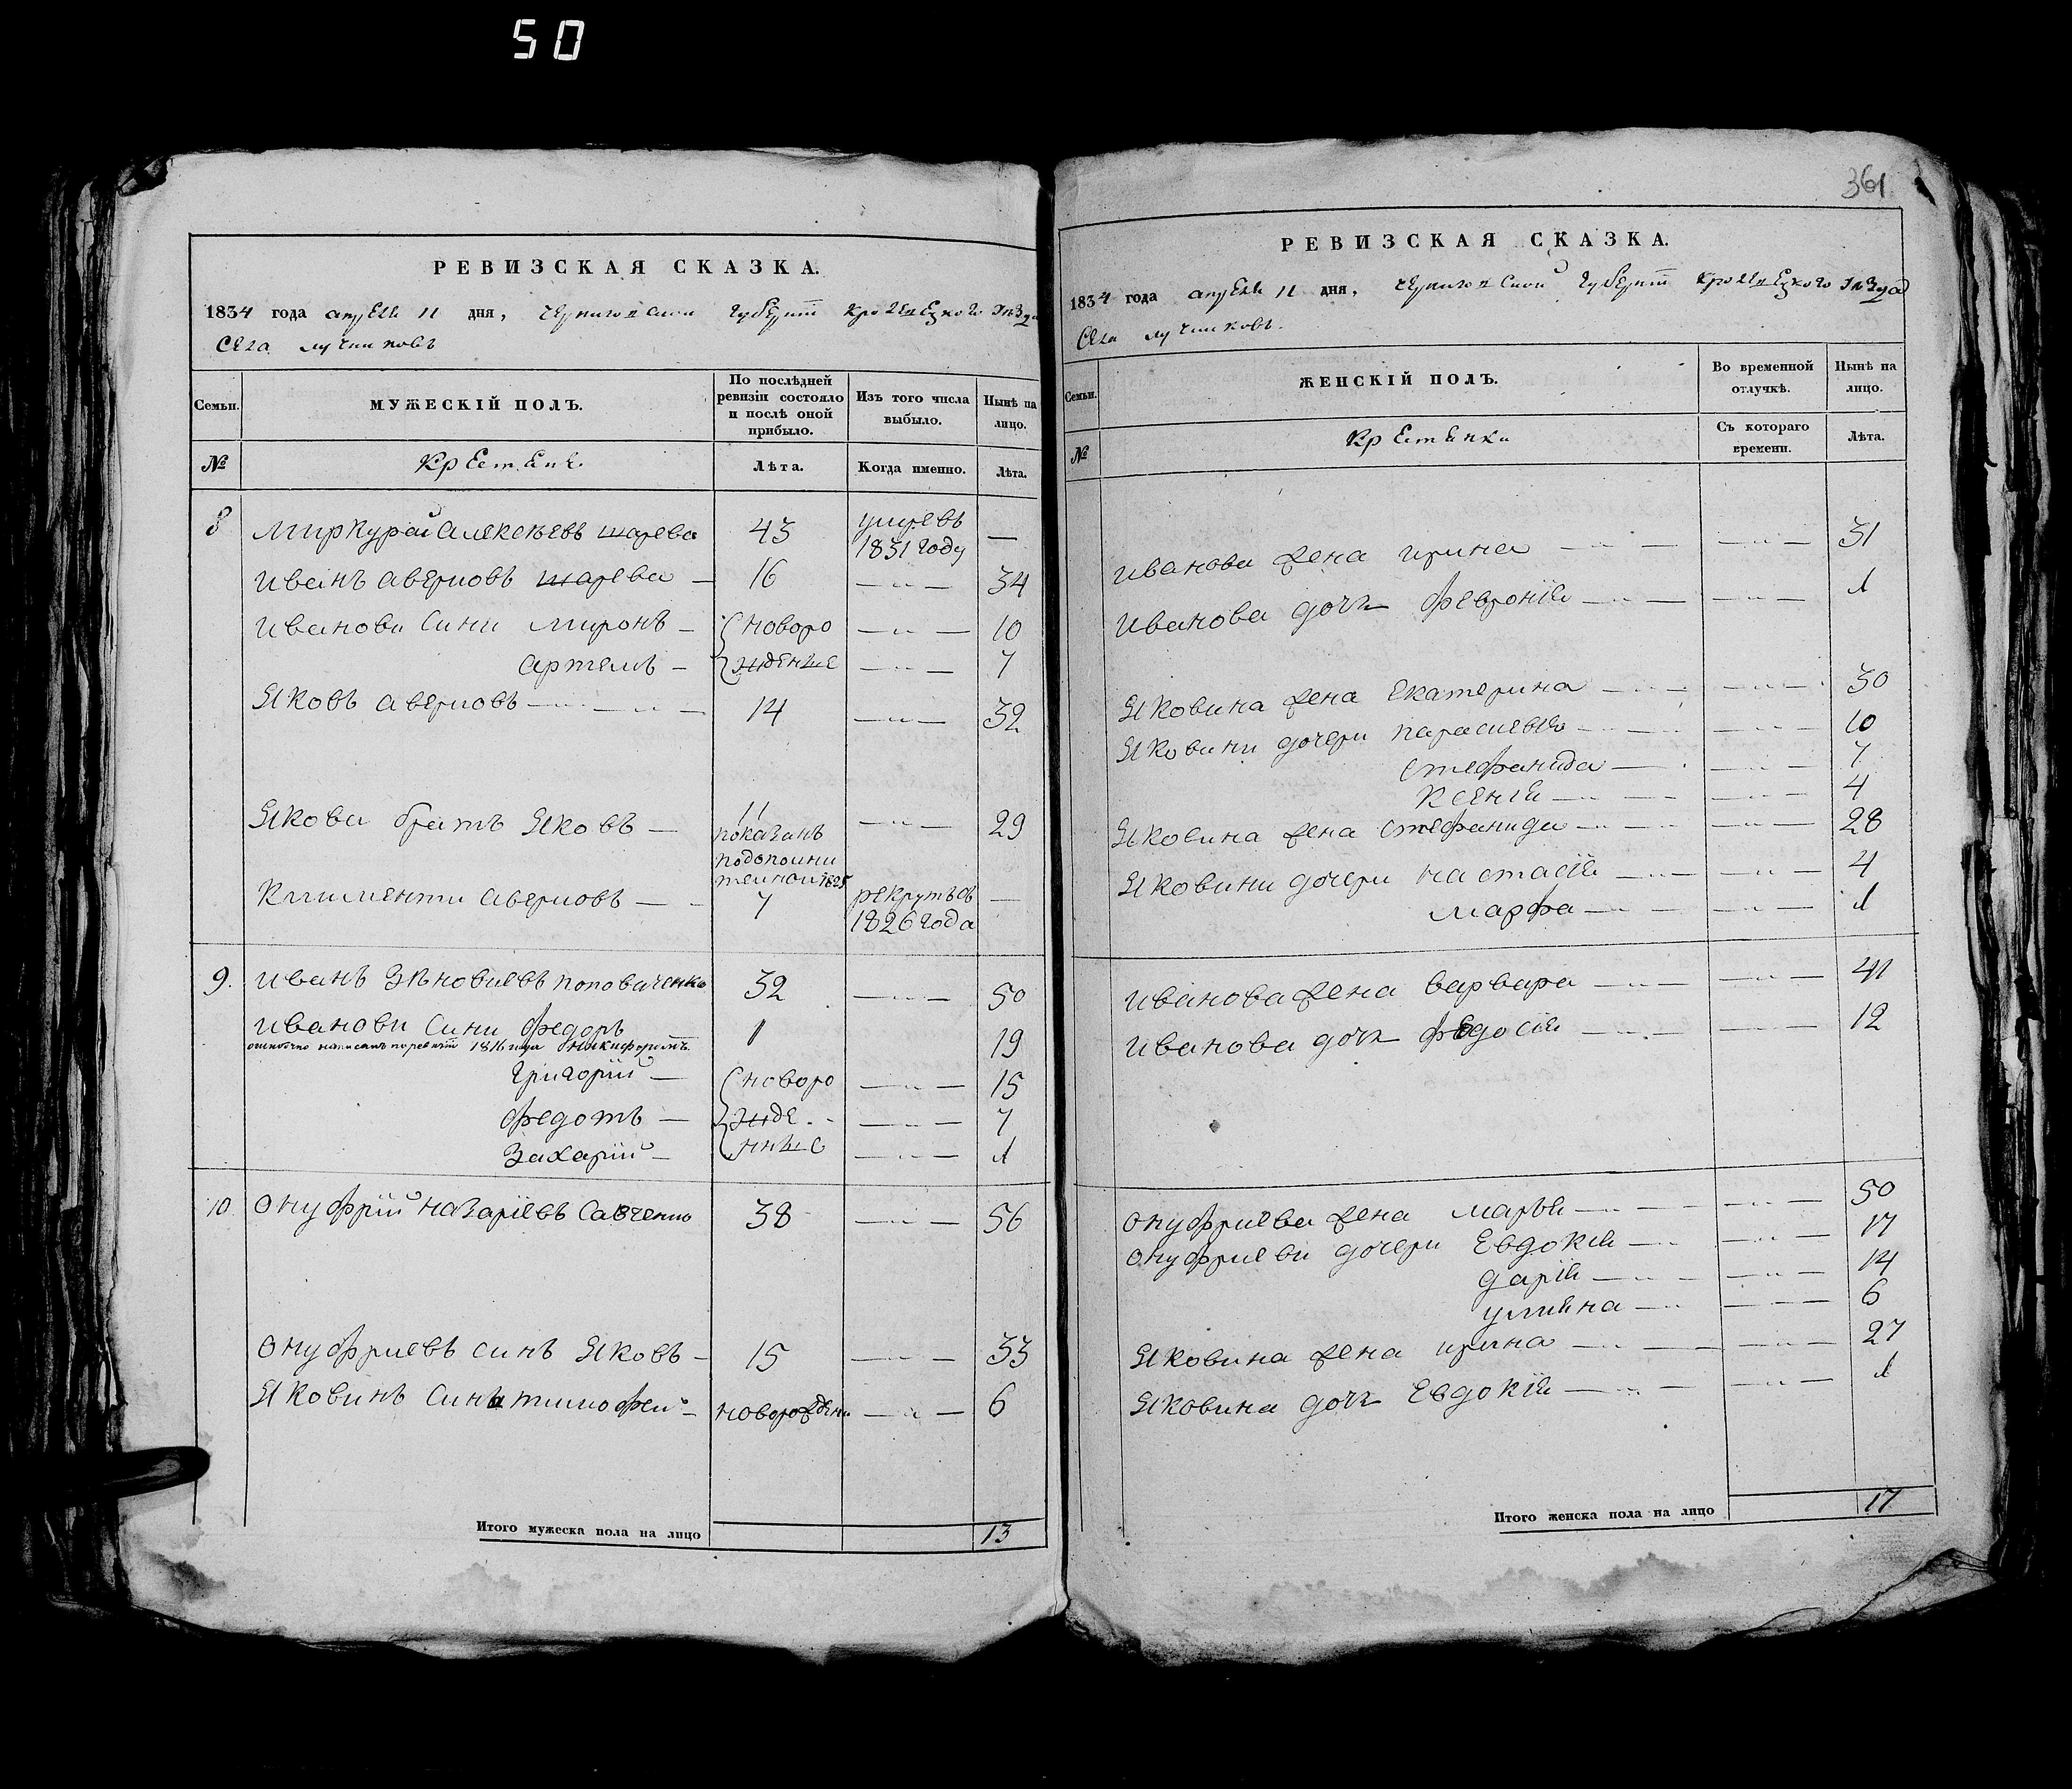 50
361
РЕВИЗСКАЯ СКАЗКА.
1834 года апреля 11 дня, Черниговской Губернiи Кролевецкого уѣзда
Села Лучниковъ
Семьи.
МУЖЕСКІЙ ПОЛЪ.
По послѣдней ревизіи состояло и послѣ оной прибыло.
Изъ того числа выбыло.
Нынѣ на лицо.
№
Крестяне.
Лѣта.
Когда именно.
Лѣта.
8 Миркурей Алексѣевъ 43 умре въ 1831 году —
Иванъ Аверковъ — 16 — " — 34
Иванови сини Миронъ — новоро — " — 10
Артемъ — жденные — " — 7
Яковъ Аверковъ — 14 — " — 32
Якова братъ Яковъ — 11 — " — 29
показанъ
по дополни
телной 1825
Климентий Аверковъ — 7 рекрутъ съ —
1826 года
9. Иванъ Зѣновиевъ Поповаченко 32 — " — 50
Иванови сини Федоръ 1 19
ошибочно написанъ по ревизiи 1816 года Никифоромъ
Григорій — новоро — " — 15
Федотъ — жде — " — 7
Захарій — нные — " — 1
10. Онуфрій Назаріевъ Савченко 38 — " — 56
Онуфриевъ синъ Яковъ — 15 — " — 33
Яковинъ синъ Тимофей — новорожденн — " — 6
Итого мужеска пола на лицо 13
РЕВИЗСКАЯ СКАЗКА.
1834 года апреля 11 дня, Черниговской Губернiи Кролевецкого уѣзда
Села Лучниковъ.
Семьи.
ЖЕНСКІЙ ПОЛЪ.
Во временной отлучкѣ.
Нынѣ на лицо.
№
Крестянки
Съ котораго времени.
Лѣта.
Иванова жена Ирина — " — — " — 31
Иванова дочь Феврония — " — — " — 1
Яковина жена Екатерина — " — — " — 30
Яковини дочери Параскевія — " — — " — 10
Стефанида — " — — " — 7
Ксенія — " — — " — 4
Яковина жена Стефанида — " — — " — 28
Яковини дочери Настасія — " — — " — 4
Марфа — " — — " — 1
Иванова жена Варвара — " — — " — 41
Иванова дочь Федосія — " — — " — 12
Онуфриева жена Марья — " — — " — 50
Онуфриеви дочери Евдокія — " — — " — 17
Дарія — " — — " — 14
Улияна — " — — " — 6
Яковина жена Ирина — " — — " — 27
Яковина дочь Евдокія — " — — " — 1
Итого женска пола на лицо 17